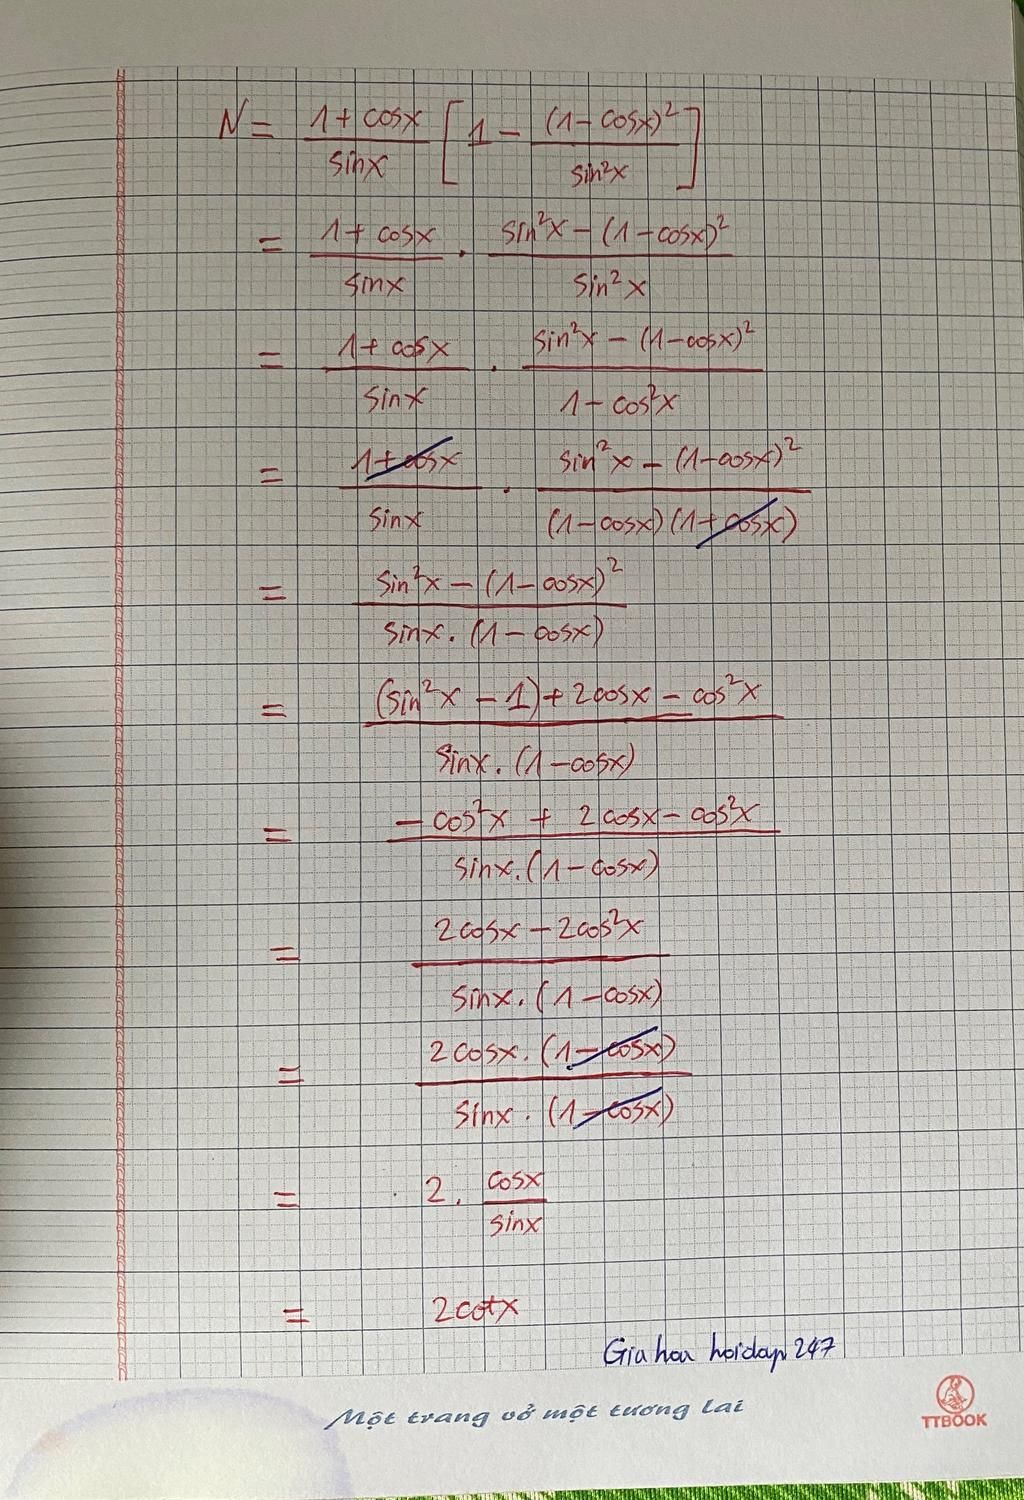 N = \frac{1 + cosx}{sinx} [1 - \frac{(1 - cosx)^2}{sin^2x}]
= \frac{1 + cosx}{sinx} . \frac{sin^2x - (1 - cosx)^2}{sin^2x}
= \frac{1 + cosx}{sinx} . \frac{sin^2x - (1 - cosx)^2}{1 - cos^2x}
= \frac{1 + cosx}{sinx} . \frac{sin^2x - (1 - cosx)^2}{(1 - cosx)(1 + cosx)}
= \frac{sin^2x - (1 - cosx)^2}{sinx . (1 - cosx)}
= \frac{(sin^2x - 1) + 2cosx - cos^2x}{sinx . (1 - cosx)}
= \frac{- cos^2x + 2cosx - cos^2x}{sinx . (1 - cosx)}
= \frac{2cosx - 2cos^2x}{sinx . (1 - cosx)}
= \frac{2cosx . (1 - cosx)}{sinx . (1 - cosx)}
= 2 . \frac{cosx}{sinx}
= 2cotx
Giahan hoidap247
Một trang vở một tương lai
TTBOOK